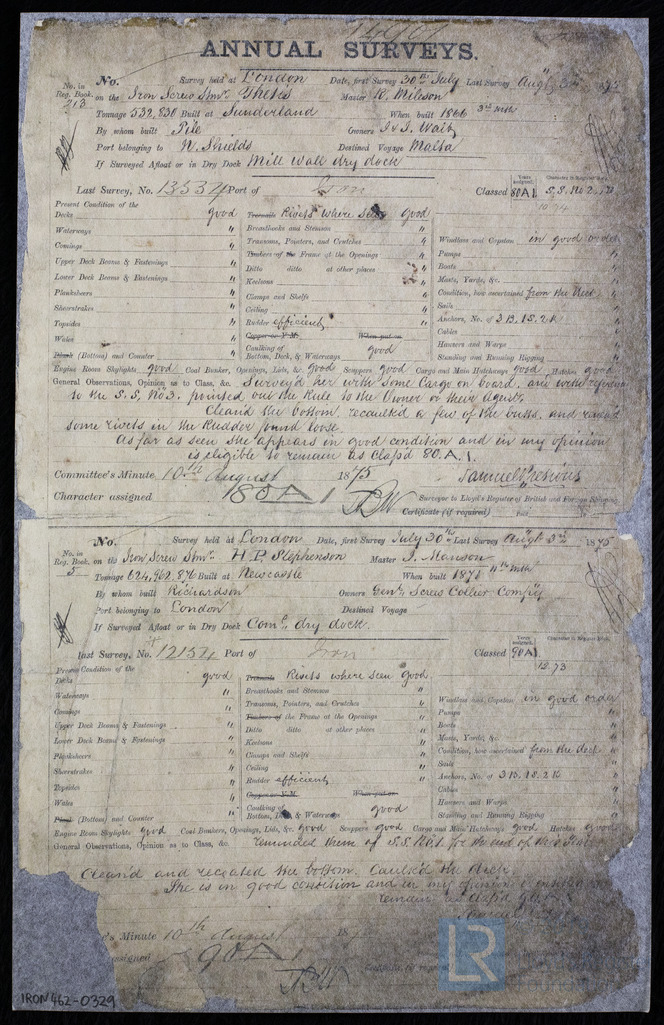 ANNUAL SURVEYS.
No. in Reg. Book. No. Survey held at London Date, first Survey 30th July Last Survey Augt 3rd 187
213 on the Iron Screw Stmr Thetis Master R. Wilson
Tonnage 532,830 Built at Sunderland When built 1866 3rd mth
By whom built Pile Owners J & J. Wait
Port belonging to N. Shields Destined Voyage Malta
If Surveyed Afloat or in Dry Dock Mill wall dry dock
Last Survey, No. 13534 Port of Iron Classed 80A1 S.S. No 2.
Present Condition of the
Decks good Treenails Rivets where seen good
Waterways " Breasthooks and Stemson "
Comings " Transoms, Pointers, and Crutches " Windlass and Capstan in good order
Upper Deck Beams & Fastenings " Timbers of the Frame at the Openings " Pumps "
Lower Deck Beams & Fastenings " Ditto ditto at other places " Boats "
Planksheers " Keelsons " Masts, Yards, &c. "
Sheerstrakes " Clamps and Shelfs " Condition, how ascertained from the deck
Topsides " Ceiling " Sails "
Wales " Rudder efficient Anchors, No. of 3 B. 1 S. 2 K
Copper or Y.M. When put on Cables "
Plank (Bottom) and Counter " Caulking of Bottom, Deck, & Waterways good Hawsers and Warps "
Standing and Running Rigging "
Engine Room Skylights good Coal Bunker, Openings, Lids, &c. good Scuppers good Cargo and Main Hatchways good Hatches good
General Observations, Opinion as to Class, &c. Survey'd her with some Cargo on board, and with reference
to the S.S. No 3. pointed out the Rule to the Owner or their Agent.
Clean'd the bottom, recaulk'd a few of the butts, and
some rivets in the Rudder found loose.
As far as seen she appears in good condition and in my opinion
is eligible to remain as Class'd 80.A.1.
Committee's Minute 10th August 1875
Character assigned 80A1 Surveyor to Lloyd's Register of British and Foreign Shipping.
Certificate (if required)
No. in Reg. Book. No. Survey held at London Date, first Survey July 30th Last Survey Augt 3rd 1875
5 on the Iron Screw Stmr H. P. Stephenson Master J. Manson
Tonnage 624,962,876 Built at Newcastle When built 1871 11th mth
By whom built Richardson Owners Genl Screw Collier Compy
Port belonging to London Destined Voyage
If Surveyed Afloat or in Dry Dock Coml dry dock.
Last Survey, No. 12154 Port of Iron Classed 90A1 12.73
Present Condition of the
Decks good Treenails Rivets where seen good
Waterways " Breasthooks and Stemson "
Comings " Transoms, Pointers, and Crutches " Windlass and Capstan in good order
Upper Deck Beams & Fastenings " Timbers of the Frame at the Openings " Pumps "
Lower Deck Beams & Fastenings " Ditto ditto at other places " Boats "
Planksheers " Keelsons " Masts, Yards, &c. "
Sheerstrakes " Clamps and Shelfs " Condition, how ascertained from the deck "
Topsides " Ceiling " Sails "
Wales " Rudder efficient Anchors, No. of 3 B. 1 S. 2 K
Copper or Y.M. When put on Cables "
Plank (Bottom) and Counter " Caulking of Bottom, Deck, & Waterways good Hawsers and Warps "
Standing and Running Rigging "
Engine Room Skylights good Coal Bunkers, Openings, Lids, &c. good Scuppers good Cargo and Main Hatchways good Hatches good
General Observations, Opinion as to Class, &c. reminded them of S.S. No 1 for the end of this Year
Clean'd and recoated the bottom. Caulk'd the deck.
She is in good condition and in my opinion is
remain as Class'd 90
's Minute 10th August 187
assigned 90A1
LR
IRON462-0329